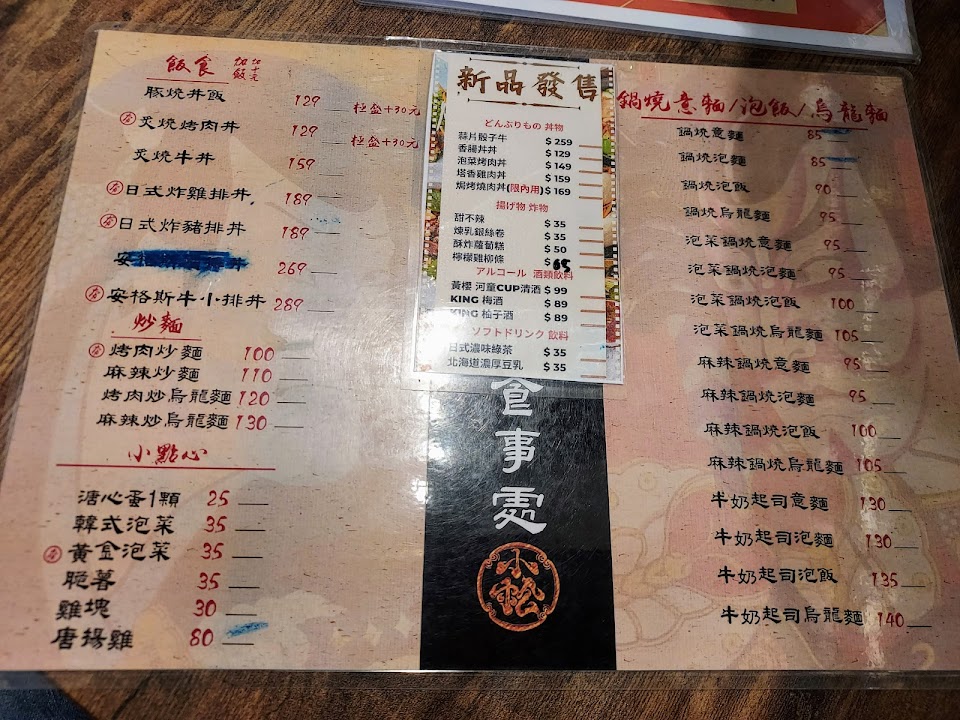 飯食 加飯加十元
豚燒丼飯 129 極盛+30元
炙燒烤肉丼 129 極盛+30元
炙燒牛丼 159
日式炸雞排丼 189
日式炸豬排丼 189
安 269
安格斯牛小排丼 289
炒麵
烤肉炒麵 100
麻辣炒麵 110
烤肉炒烏龍麵 120
麻辣炒烏龍麵 130
小點心
溏心蛋1顆 25
韓式泡菜 35
黃金泡菜 35
脆薯 35
雞塊 30
唐揚雞 80
新品發售
どんぶりもの 丼物
蒜片骰子牛 $ 259
香腸丼丼 $ 129
泡菜烤肉丼 $ 149
塔香雞肉丼 $ 159
焗烤燒肉丼(限內用) $ 169
揚げ物 炸物
甜不辣 $ 35
煉乳銀絲卷 $ 35
酥炸蘿蔔糕 $ 50
檸檬雞柳條 $ 65
アルコール 酒類飲料
黃櫻 河童CUP清酒 $ 99
KING 梅酒 $ 89
KING 柚子酒 $ 89
ソフトドリンク 飲料
日式濃味綠茶 $ 35
北海道濃厚豆乳 $ 35
食事処
鍋燒意麵/泡飯/烏龍麵
鍋燒意麵 85
鍋燒泡麵 85
鍋燒泡飯 90
鍋燒烏龍麵 95
泡菜鍋燒意麵 95
泡菜鍋燒泡麵 95
泡菜鍋燒泡飯 100
泡菜鍋燒烏龍麵 105
麻辣鍋燒意麵 95
麻辣鍋燒泡麵 95
麻辣鍋燒泡飯 100
麻辣鍋燒烏龍麵 105
牛奶起司意麵 130
牛奶起司泡麵 130
牛奶起司泡飯 135
牛奶起司烏龍麵 140